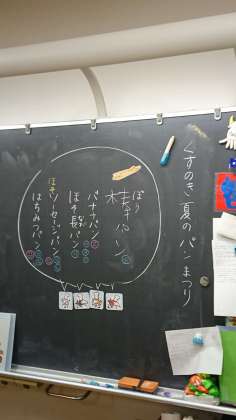 くすのき 夏のパンまつり
ぼう
パン
バナナパン
ほそ長パン
ほそソーセージパン
はちみつパン